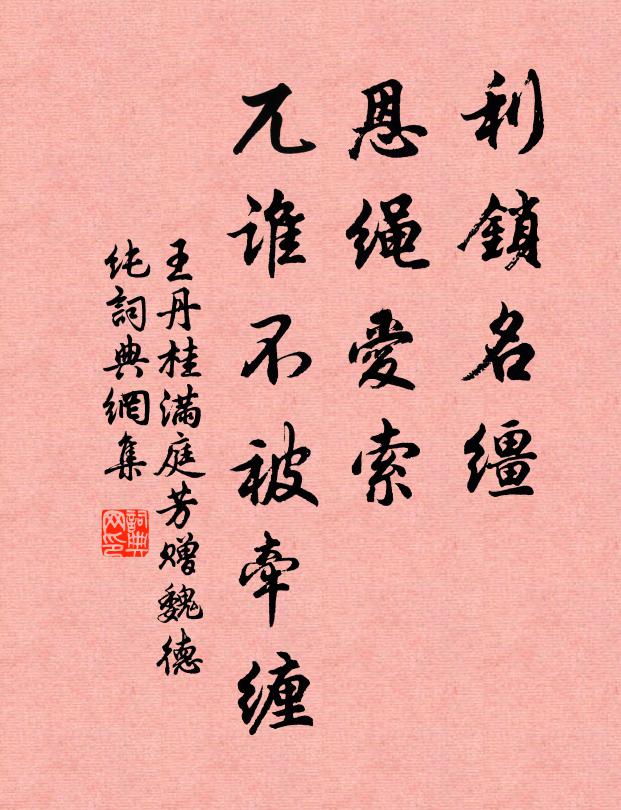 利鎖名繮
恩繩愛索
兀誰不被牽纏
王丹桂滿庭芳贈魏德
純詞典網集
詞典
网印